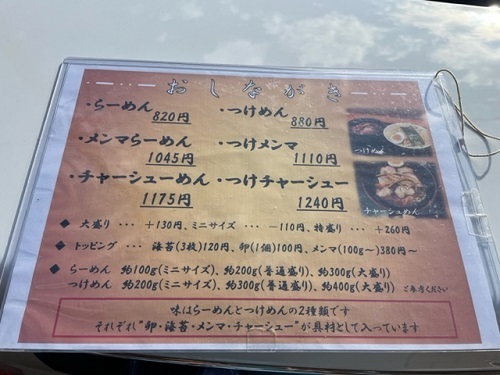 おしながき
・らーめん 820円 ・つけめん 880円
・メンマらーめん 1045円 ・つけメンマ 1110円
・チャーシューめん 1175円 ・つけチャーシュー 1240円
つけめん
チャーシュめん
◆ 大盛り ・・・ +130円、ミニサイズ ・・・ −110円、特盛り ・・・ +260円
◆ トッピング ・・・ 海苔(3枚)120円、卵(1個)100円、メンマ(100g〜)380円〜
◆ らーめん 約100g(ミニサイズ)、約200g(普通盛り)、約300g(大盛り)
つけめん 約200g(ミニサイズ)、約300g(普通盛り)、約400g(大盛り) ご参考ください
味はらーめんとつけめんの2種類です
それぞれ"卵・海苔・メンマ・チャーシュー"が具材として入っています